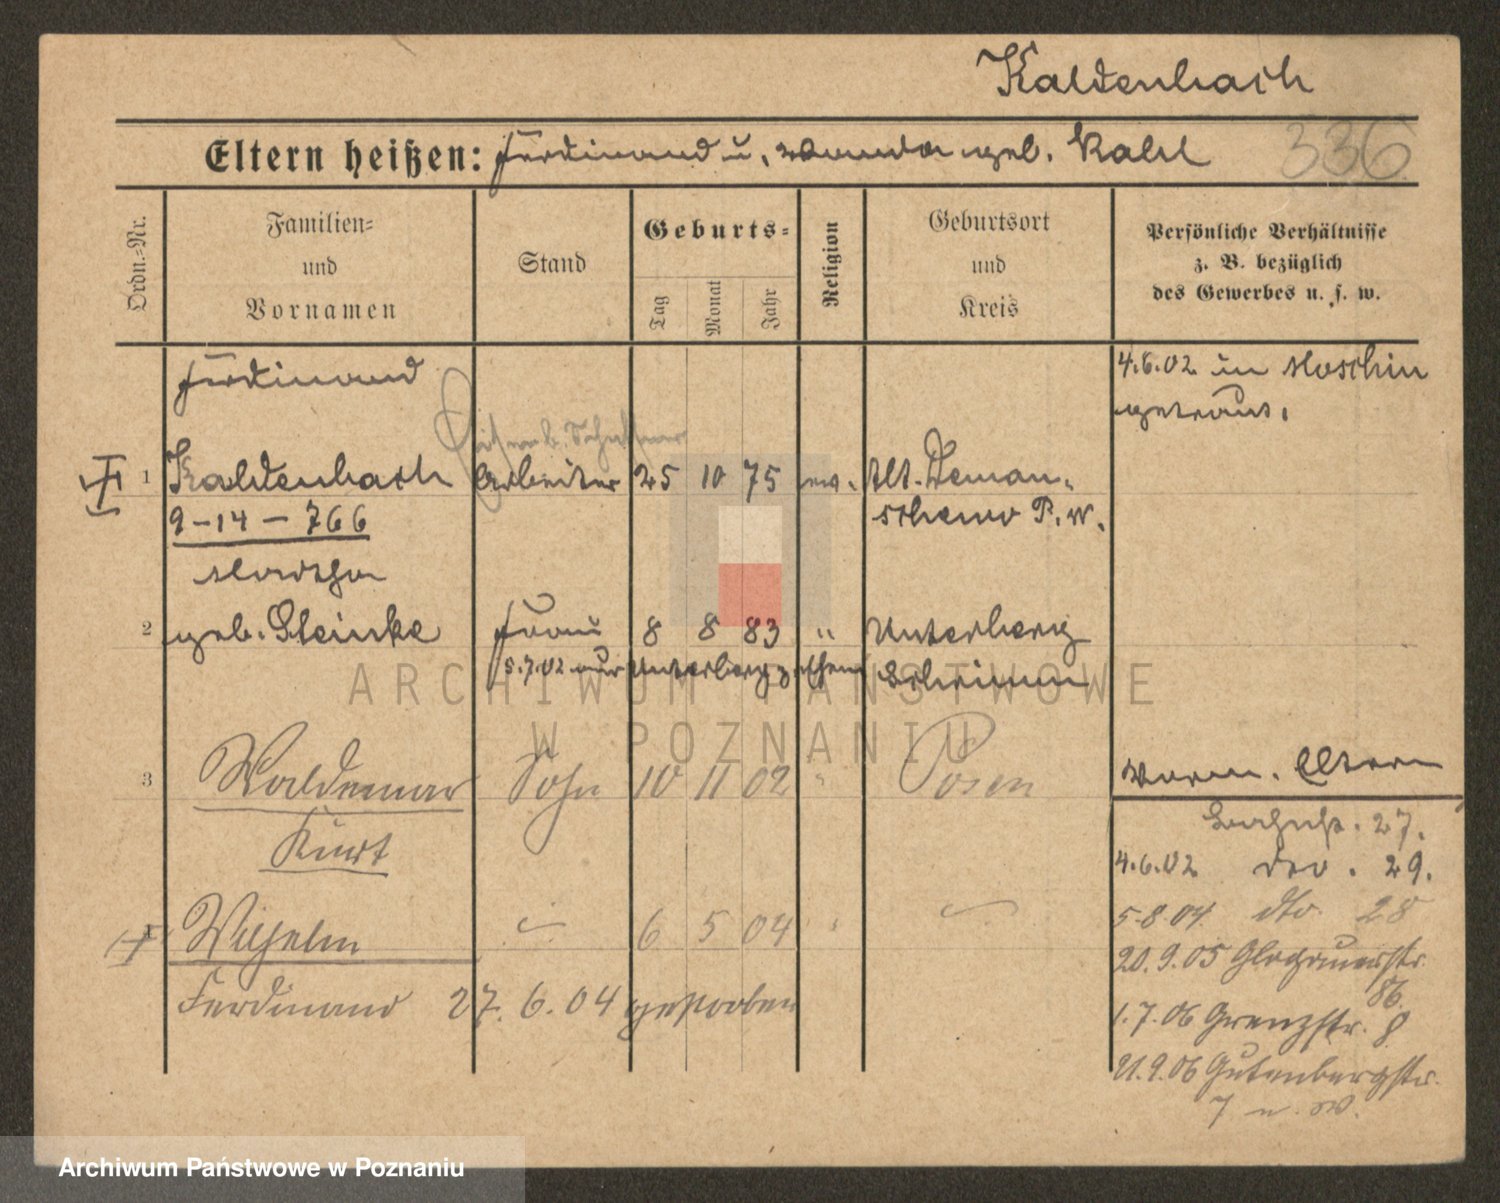 Kaldenbach
Eltern heißen: Ferdinand u. Wanda geb. Kahl
336
Ordn.-Nr.
Familien-
und
Vornamen
Stand
Geburts-
Tag
Monat
Jahr
Religion
Geburtsort
und
Kreis
Persönliche Verhältnisse
z. B. bezüglich
des Gewerbes u. s. w.
Ferdinand
4.6.02 in Moschin
getraut.
Eisenb. Schaffner
1 Kaldenbach Arbeiter 25 10 75 ev. Alt. Deman-
9-14-766
schewo P. W.
Martha
2 geb. Steinke Frau 8 8 83 " Unterberg
5.7.02 aus Unterberg Schrimm
3 Waldemar Sohn 10 11 02 " Posen
Kurt
Wilhelm 6 5 04 "
Ferdinand 27.6.04 gestorben
Eltern
27.
4.6.02 dto. 29.
5.8.04 dto. 28
20.9.05 Glogauerstr.
86.
1.7.06 Grenzstr. 8
21.9.06 Gutenbergstr.
7
ARCHIWUM PAŃSTWOWE
W POZNANIU
Archiwum Państwowe w Poznaniu